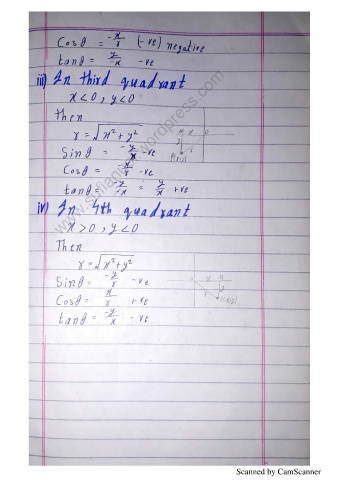 Cosθ = -x/r (-ve) negative
tanθ = y/-x -ve
iii) In third quadrant
x<0, y<0
then
r = √x²+y²
Sinθ = -y/r -ve
Cosθ = -x/r -ve
tanθ = -y/-x = y/x +ve
iv) In 4th quadrant
x>0, y<0
Then
r = √x²+y²
Sinθ = -y/r -ve
Cosθ = x/r +ve
tanθ = -y/x -ve
Scanned by CamScanner